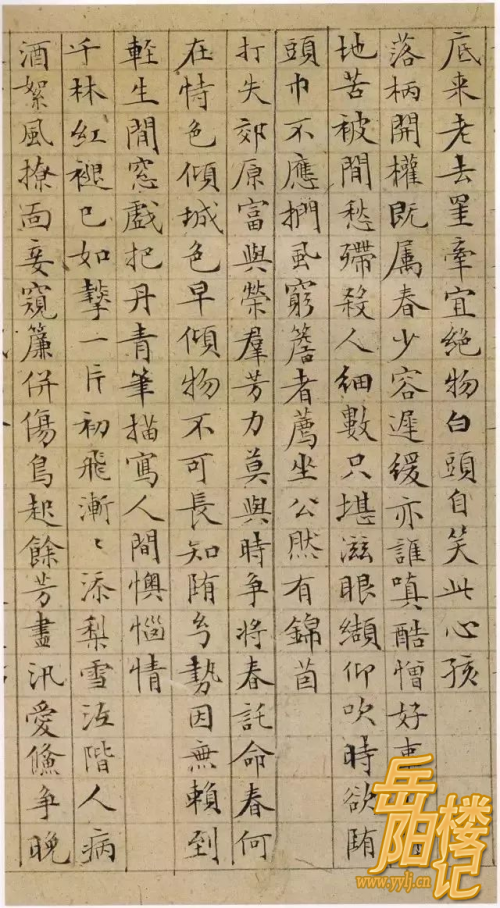 底来老去罣牽宜絶物白頭自笑此心孩
落柄開權既属春少容遲緩亦誰嗔酷憎好事
地苦被閒愁殢殺人細數只堪滋眼纈仰吹時欲堕
頭巾不應捫虱窮簷者薦坐公然有錦茵
打失郊原富與榮羣芳力莫與時争将春託命春何
在恃色傾城色早傾物不可長知堕兮勢因無賴到
輊生閒窓戲把丹青筆描寫人間懊惱情
千林紅褪已如 一片初飛漸〻添梨雪 階人病
酒絮風撩面妾窺簾併傷鳥起餘芳盡汎愛儵争晚
岳阳楼记
www.yylj.cn